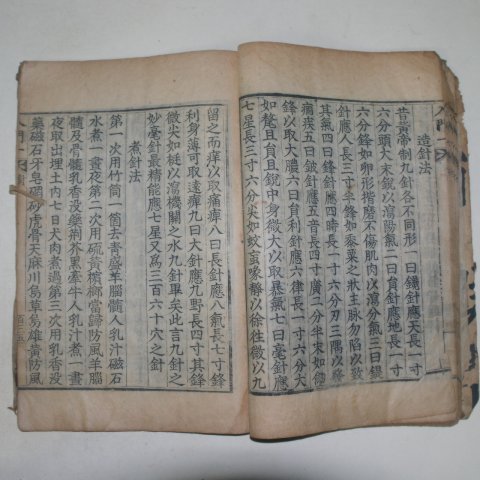 造針法
昔黃帝制九針各不同形一曰鑱針應天長一寸
六分頭大末銳以瀉陽氣二曰員針應地長一寸
六分鋒如卵形揩磨不傷肌肉以瀉分氣三曰鍉
針應人長三寸半鋒如黍粟之狀主脉勿陷以致
其氣四曰鋒針應四時長一寸六分刃三隅以發
痼疾五曰鈹針應五音長四寸廣二分半末如劍
鋒以取大膿六曰員利針應六律長一寸六分大
如氂且員且銳中身微大以取暴氣七曰毫針應
七星長三寸六分尖如蚊䖟喙靜以徐往微以久
留之而痒以取痛痹八曰長針應八氣長七寸其鋒
利身薄可取遠痹九曰大針應九野長四寸其鋒
微尖如梃以瀉機關之水九針畢矣此言九針之
妙毫針最精能應七星又爲三百六十穴之針
煮針法
第一次用竹筒一箇去青盛羊腦髓人乳汁磁石
水煮一晝夜第二次用硫黃檳榔當歸防風羊腦
髓及骨髓乳香没藥荊芥黑牽牛人乳汁煮一晝
夜取出埋土內七日犬肉煮過第三次用乳香没
藥磁石牙皂硇砂虎骨天麻川烏草烏雄黃防風